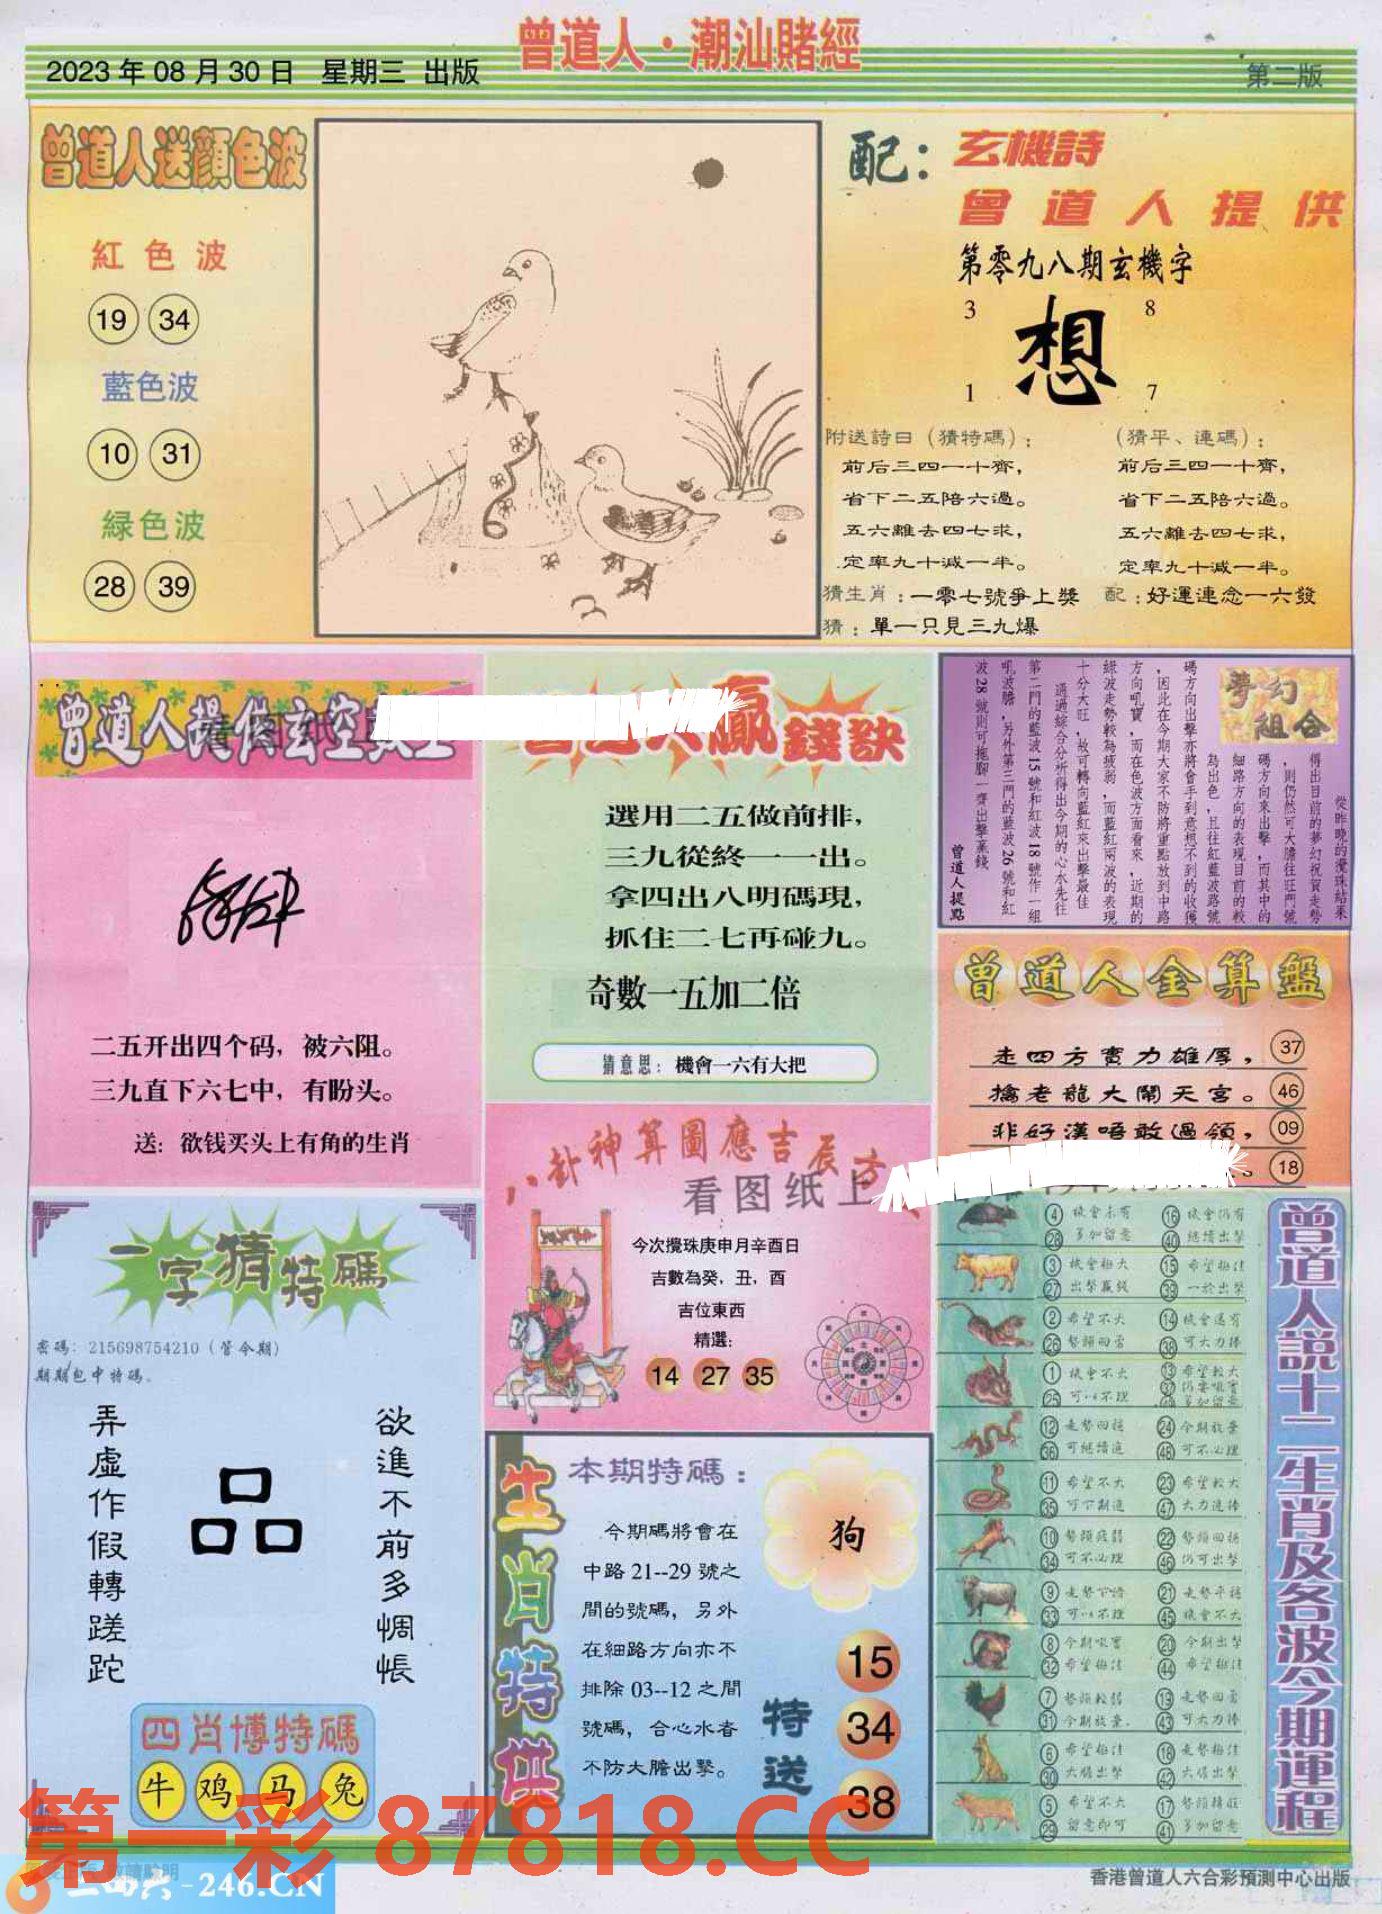 曾道人·潮汕賭經
2023年08月30日 星期三 出版
第二版
曾道人送顏色波
紅色波
19 34
藍色波
10 31
緑色波
28 39
配：玄機詩
曾道人提供
第零九八期玄機字
3 8
想
1 7
附送詩曰（猜特碼）：
前后三四一十齊，
省下二五陪六過。
五六離去四七求，
定率九十減一半。
（猜平、連碼）：
前后三四一十齊，
省下二五陪六過。
五六離去四七求，
定率九十減一半。
猜生肖：一零七號爭上獎
配：好運連念一六發
猜：單一只見三九爆
曾道人提供玄空
二五开出四个码，被六阻。
三九直下六七中，有盼头。
送：欲钱买头上有角的生肖
贏錢訣
選用二五做前排，
三九從終一一出。
拿四出八明碼現，
抓住二七再碰九。
奇數一五加二倍
猜意思：機會一六有大把
夢幻組合
從昨晚的攪珠結果
得出目前的夢幻祝賀走勢
，則仍然可大膽往旺門號
碼方向來出擊，而其中的
細路方向的表現目前的較
為出色，且往紅藍波路號
碼方向出擊亦將會手到意想不到的收獲
，因此在今期大家不防將重點放到中路
方向吼寶，而在色波方面看來，近期的
綠波走勢較為疲弱，而藍紅兩波的表現
十分大旺，故可轉向藍紅來出擊最佳
通過綜合分析得出今期的心水先往
第二門的藍波15號和紅波18號作一組
吼波膽，另外第三門的藍波26號和紅
波28號則可拖腳一齊出擊贏錢
曾道人提點
曾道人金算盤
走四方實力雄厚， 37
擒老龍大鬧天宮。 46
非好漢唔敢過領， 09
18
八卦神算圖應吉辰方
看图纸上
今次攪珠庚申月辛酉日
吉數為癸，丑，酉
吉位東西
精選：
14 27 35
一字猜特碼
密碼：215698754210（管今期）
期期包中特碼。
弄虛作假轉蹉跎
品
欲進不前多惆悵
四肖博特碼
牛 鸡 马 兔
生肖特供
本期特碼：
今期碼將會在
中路21--29號之
間的號碼，另外
在細路方向亦不
排除03--12之間
號碼，合心水者
不防大膽出擊。
狗
特送
15
34
38
曾道人説十二生肖及各波今期運程
4 機會未有 16 機會仍有
28 多加留意 40 繼續出擊
3 機會極大 15 希望極佳
27 出擊贏錢 39 一於出擊
2 希望不大 14 機會還有
26 勢頭回落 38 可大力捧
1 機會不大 13 希望較大
25 可以不理 37
12 走勢回穩 24 今期放棄
36 可繼續追 48 可不必理
11 希望不大 23 希望較大
35 47 大力追捧
10 勢頭疲弱 22 勢頭回穩
34 可不必理 46 仍可出擊
9 21 走勢平穩
33 可以不理 45 機會不大
8 今期吼寶 20 今期出擊
32 希望極佳 44 希望極佳
7 勢頭較弱 19 走勢回落
31 今期放棄 43 可大力捧
6 希望極佳 18 走勢極佳
30 大膽出擊 42 大膽出擊
5 希望不大 17 勢頭轉旺
29 留意即可 41 多加留意
第一彩 87818.CC
二四六-246.CN
香港曾道人六合彩預測中心出版